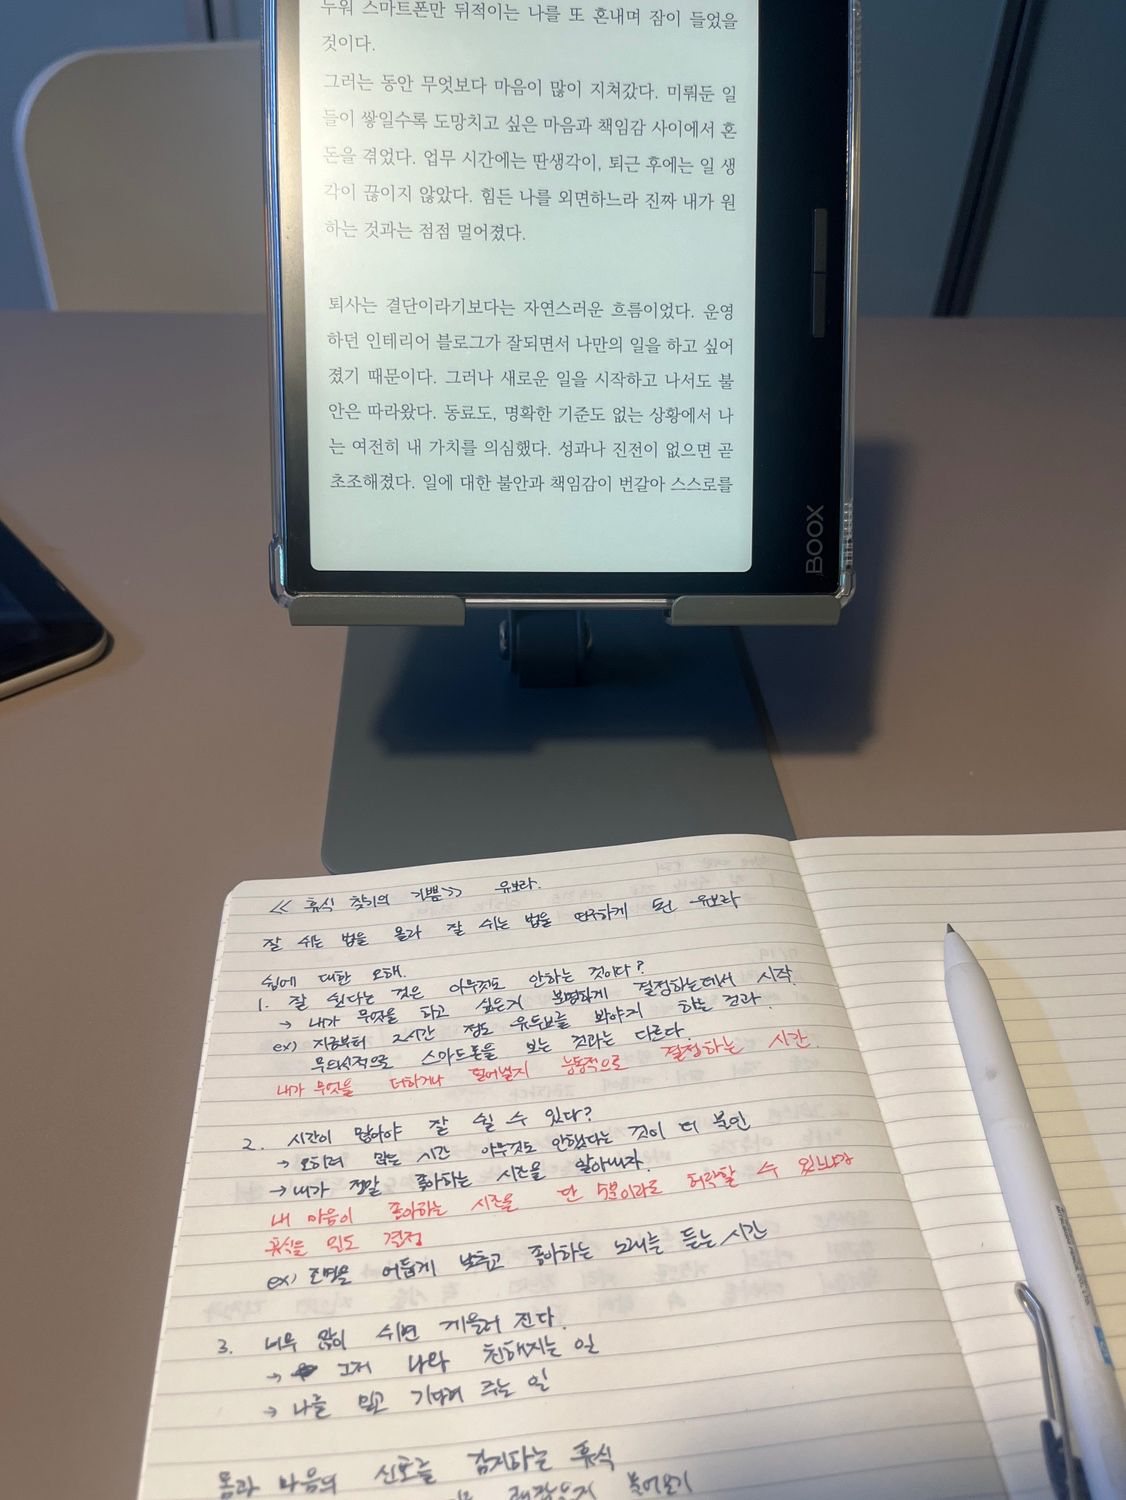 누워 스마트폰만 뒤적이는 나를 또 혼내며 잠이 들었을
것이다.
그러는 동안 무엇보다 마음이 많이 지쳐갔다. 미뤄둔 일
들이 쌓일수록 도망치고 싶은 마음과 책임감 사이에서 혼
돈을 겪었다. 업무 시간에는 딴생각이, 퇴근 후에는 일 생
각이 끊이지 않았다. 힘든 나를 외면하느라 진짜 내가 원
하는 것과는 점점 멀어졌다.
퇴사는 결단이라기보다는 자연스러운 흐름이었다. 운영
하던 인테리어 블로그가 잘되면서 나만의 일을 하고 싶어
졌기 때문이다. 그러나 새로운 일을 시작하고 나서도 불
안은 따라왔다. 동료도, 명확한 기준도 없는 상황에서 나
는 여전히 내 가치를 의심했다. 성과나 진전이 없으면 곧
초조해졌다. 일에 대한 불안과 책임감이 번갈아 스스로를
BOOX
<< 휴식 찾기의 기쁨>> 유보라.
잘 쉬는 법을 몰라 잘 쉬는 법을 연구하게 된 유보라
쉼에 대한 오해.
1. 잘 쉰다는 것은 아무것도 안하는 것이다?
→ 내가 무엇을 하고 싶은지 분명하게 결정하는데서 시작.
ex) 지금부터 2시간 정도 유튜브를 봐야지 하는 것과
무의식적으로 스마트폰을 보는 것과는 다르다.
내가 무엇을 더하거나 덜어낼지 능동적으로 결정하는 시간.
2. 시간이 많아야 잘 쉴 수 있다?
→ 오히려 많은 시간 아무것도 안했다는 것이 더 불안
→ 내가 정말 좋아하는 시간을 알아내자.
내 마음이 좋아하는 시간을 단 5분이라도 허락할 수 있느냐가
휴식을 밀도 결정
ex) 조명을 어둡게 낮추고 좋아하는 노래를 듣는 시간
3. 너무 많이 쉬면 게을러 진다.
→ 그저 나와 친해지는 일
→ 나를 믿고 기다려 주는 일
몸과 마음의 신호를 감지하는 휴식
물어보기